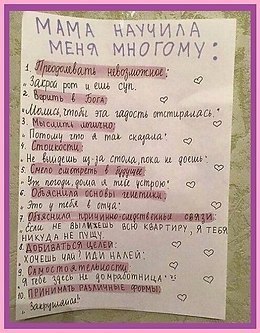 МАМА НАУЧИЛА
МЕНЯ МНОГОМУ:
1. Преодолевать невозможное:
"Закрой рот и ешь суп."
2. Верить в Бога:
"Молись, чтобы эта гадость отстиралась."
3. Мыслить логично:
"Потому что я так сказала."
4. Стойкости:
"Не выйдешь из-за стола, пока не доешь."
5. Смело смотреть в будущее:
"Уж погоди, дома я тебе устрою."
6. Объяснила основы генетики:
"Это у тебя в отца."
7. Объяснила причинно-следственные связи:
"Если не вылижешь всю квартиру, я тебя
никуда не пущу."
8. ДОБИВАТЬСЯ ЦЕЛЕЙ:
"ХОЧЕШЬ ЧАЙ? ИДИ НАЛЕЙ."
9. Самостоятельности:
"Я тебе здесь не домработница."
10. ПРИНИМАТЬ РАЗЛИЧНЫЕ ФОРМЫ: